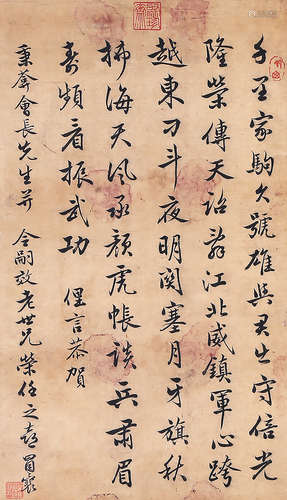 千里家駒久號雄與君出守倍光
隆榮傳天詔辭江北威鎮軍心跨
越東刁斗夜明関塞月牙旗秋
掃海天風承顏虎帳談兵肅眉
壽頻看振武功 俚言恭賀
秉奪會長先生并 令嗣效老世兄榮任之喜 冒襄